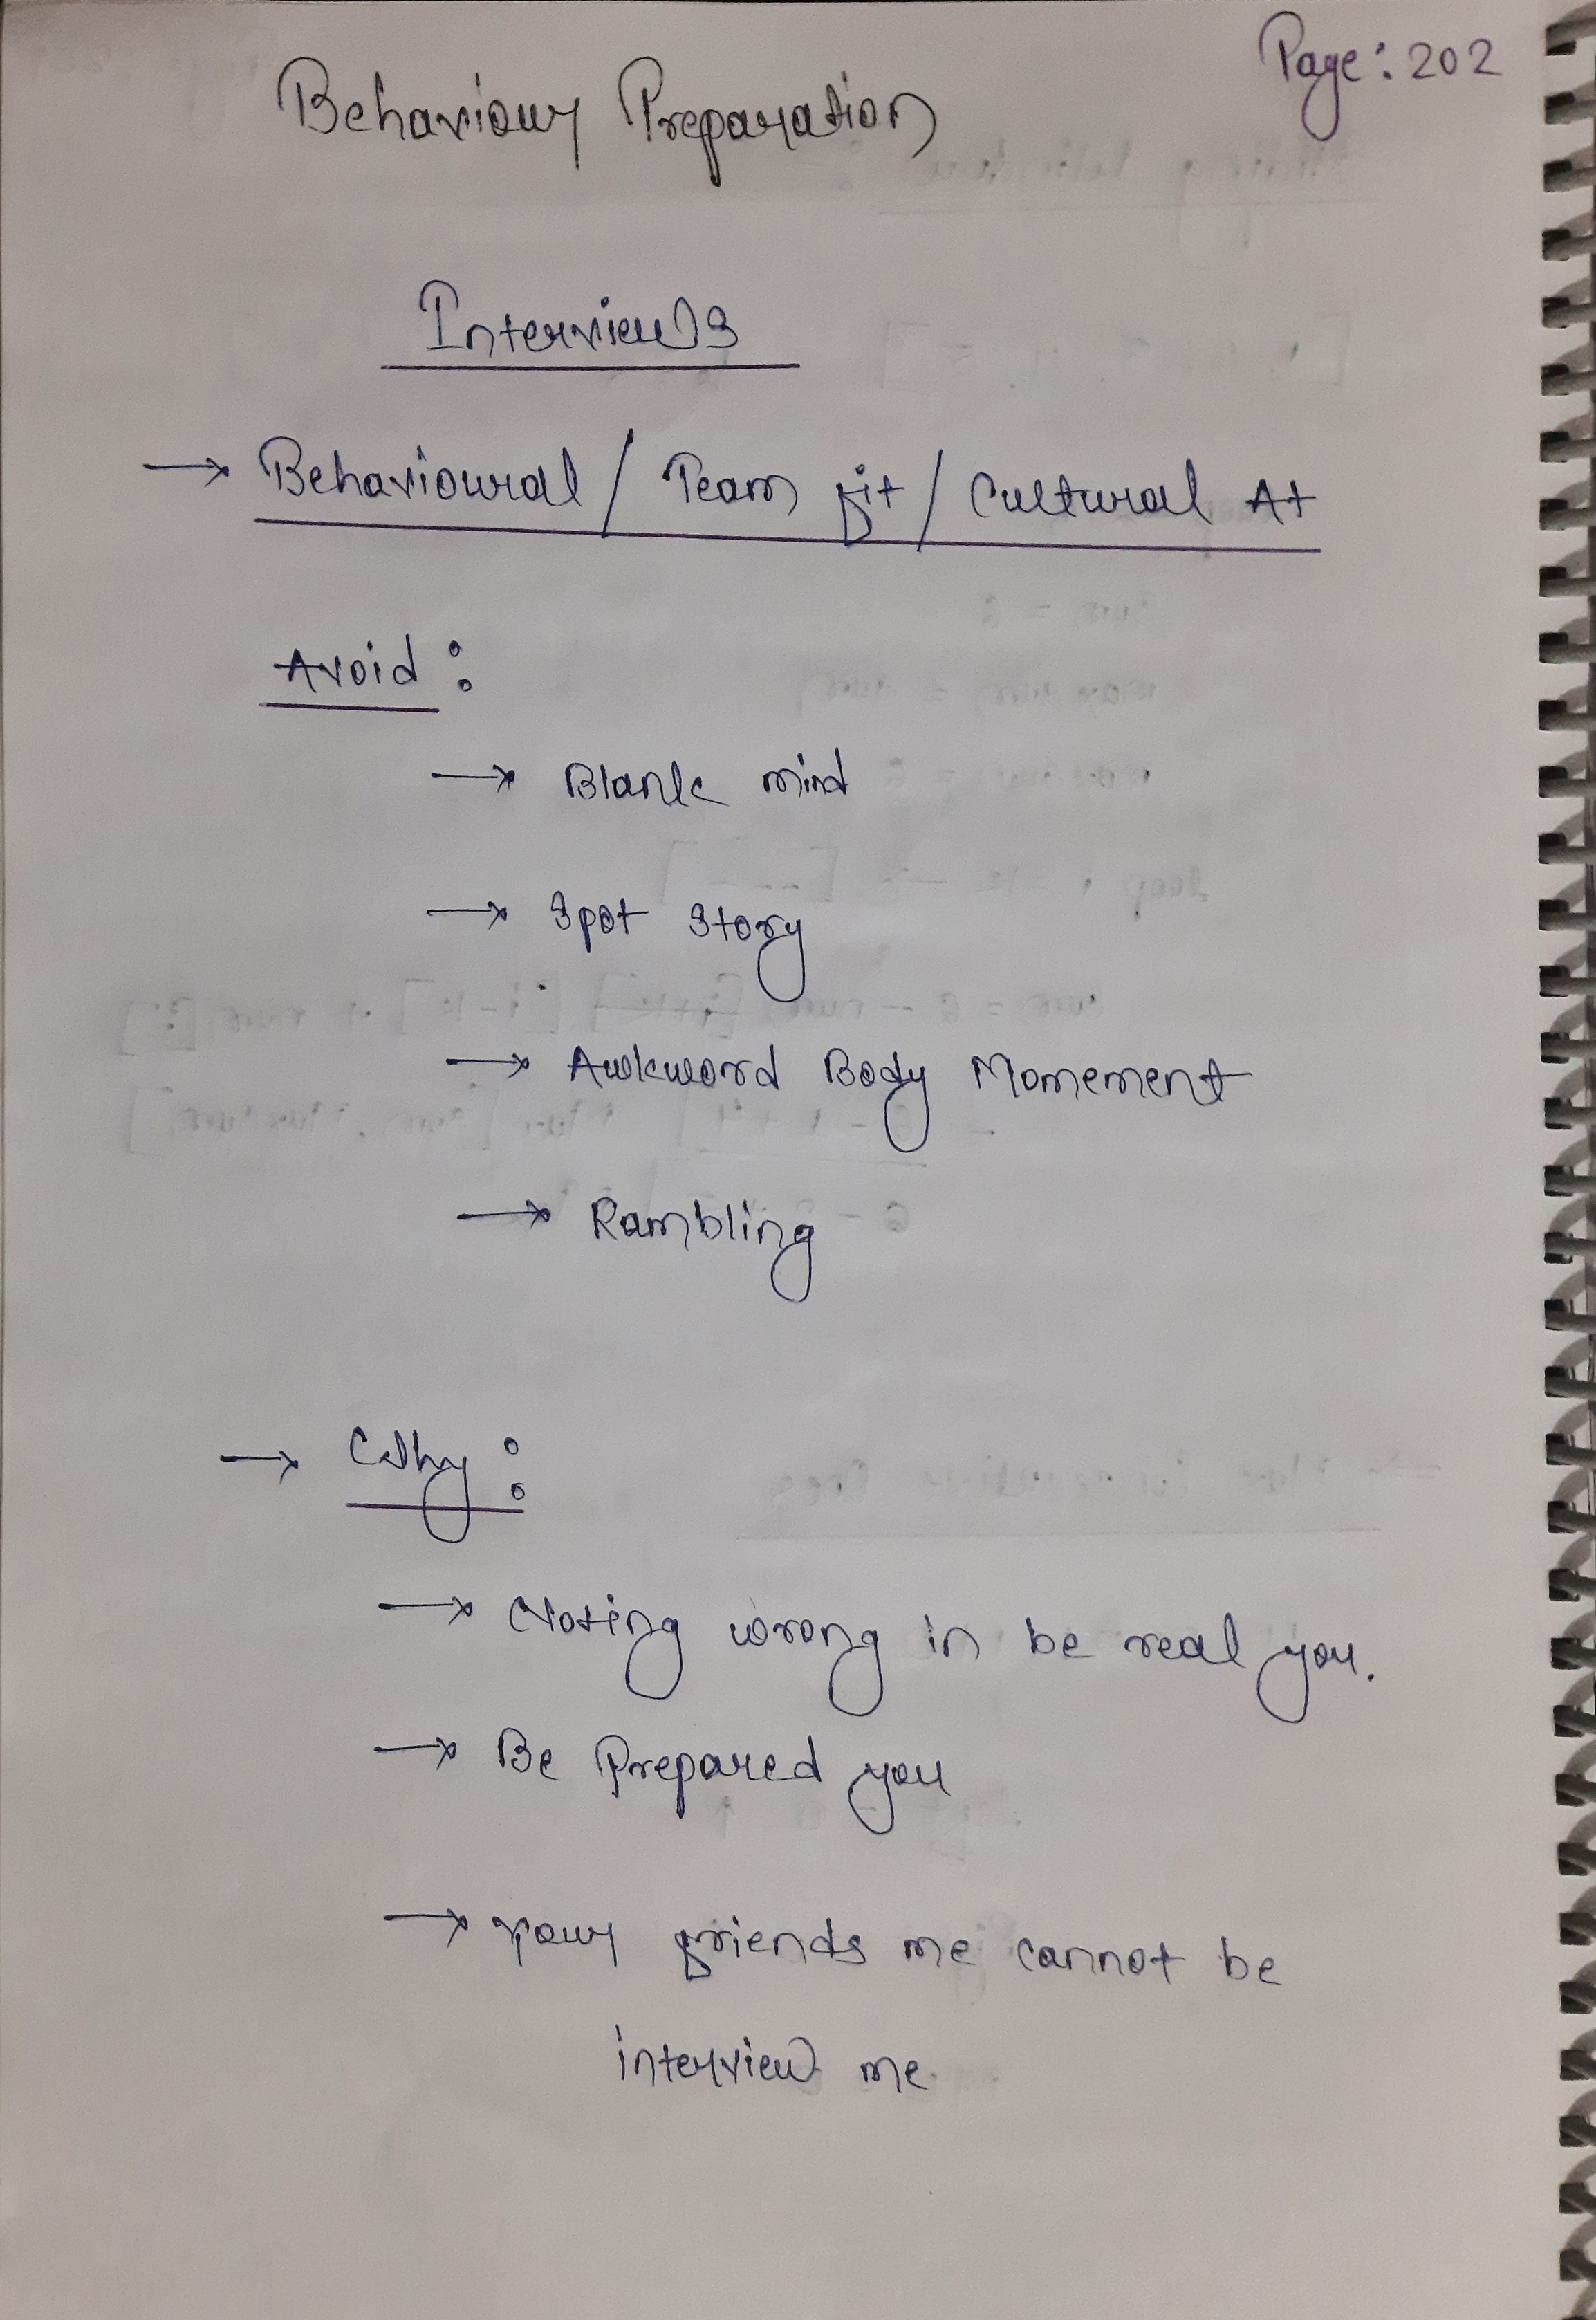 Page: 202
Behaviour Preparation
Interviews
→ Behavioural / Team fit / Cultural At
Avoid:
→ Blank mind
→ Spot Story
→ Awkword Body Momement
→ Rambling
→ Why:
→ Noting wrong in be real you.
→ Be Prepared you
→ your friends me cannot be
interview me